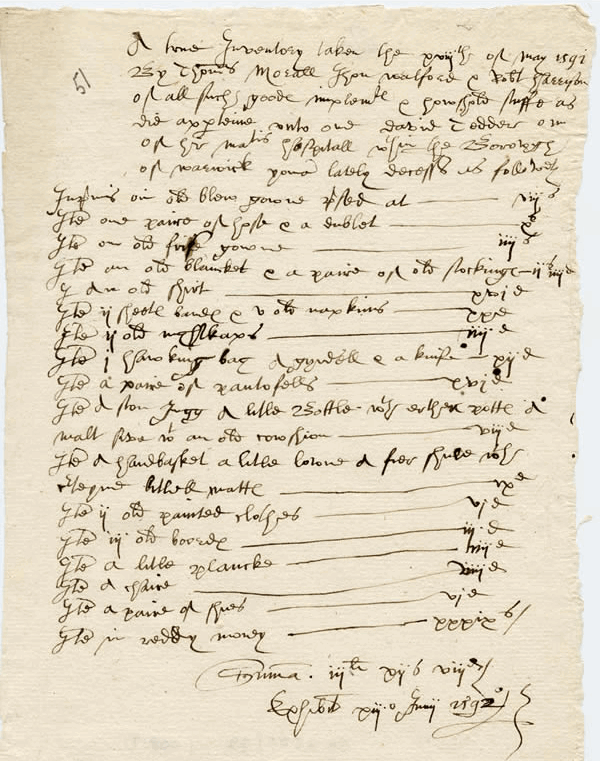 51
A true Inventory taken the xviith of May 1592
By Thoms Morall Jhon walford & Robt Harrison
of all suche goodes implemtes & howshold stuffe as
did apperteine unto one david Tedder on
of hir matis hospitall wthin the Borowgh
of warwick yoma lately decessed as followeth
Inprimis on old blew gowne prised at viijs
Ite one paire of hose & a dublet xs
Ite on old frise gowne iiijs
Ite an old blancket & a paire of old stockinges ijs iiijd
& an old shirt xvjd
Ite ij sheetes bandes & v old napkins xxd
Ite ij old nightkaps iiijd
Ite j hawking bag A gyrdell & a knife xijd
Ite a paire of pantofells xvjd
Ite A ston Jugg A litle Bottle wth erthen potte A
malt sive wt an old cowshion viijd
Ite A handbasket a litle A fier shule wth
matte ixd
Ite ij old painted clothes vjd
Ite iij old boordes iijd
Ite a litle plancke iiijd
Ite A chaire iiijd
Ite a paire of shues vjd
Ite in reddy money xxxixs
Suma. iijli xijs viijd
Exhibit xijo Junij 1592